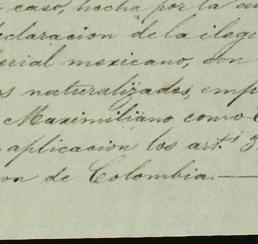 caso, hecha por la au
eclaracion de la ileg
erial mexicano, con
os naturalizados, emp
Maximiliano como
aplicacion los artˢ 3
on de Colombia.—